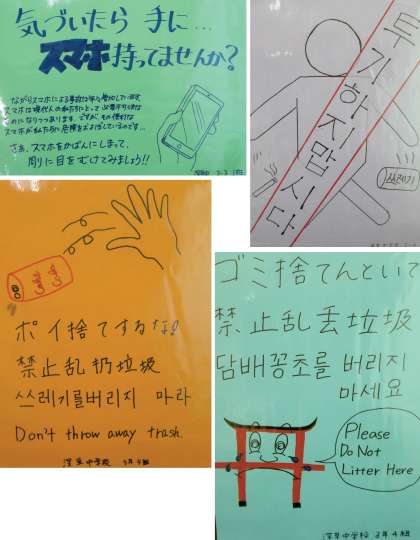 気づいたら 手に…
スマホ持ってませんか?
ながらスマホによる事故は年々増加しています。
スマホは現代人の私たちにとって 必要不可欠な
ものになりつつあります。ですが、その便利な
スマホが私たちに危険をおよぼしているのです…
さぁ、スマホをかばんにしまって、
周りに目をむけてみましょう!!
투기하지맙시다
쓰레기
Coke
ポイ捨てするな!
禁止乱扔垃圾
쓰레기를버리지 마라
Don't throw away trash.
深泉中学校 3年4組
ゴミ捨てんといて
禁止乱丢垃圾
담배꽁초를 버리지
마세요
Please
Do Not
Litter Here
深泉中学校 3年4組